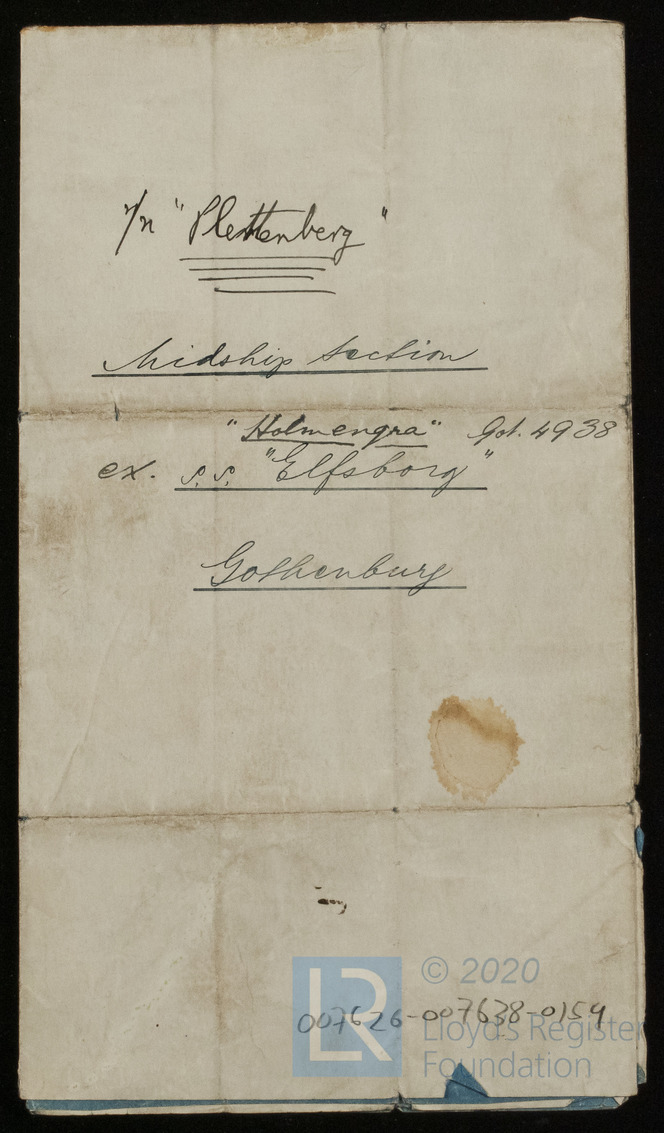 "/n "Plettenberg"
Midship Section
"Holmengra" Got. 4938
ex. S.S. "Elfsborg"
Gothenburg
© 2020
007626-007638-0154
LR
Lloyd's Register
Foundation